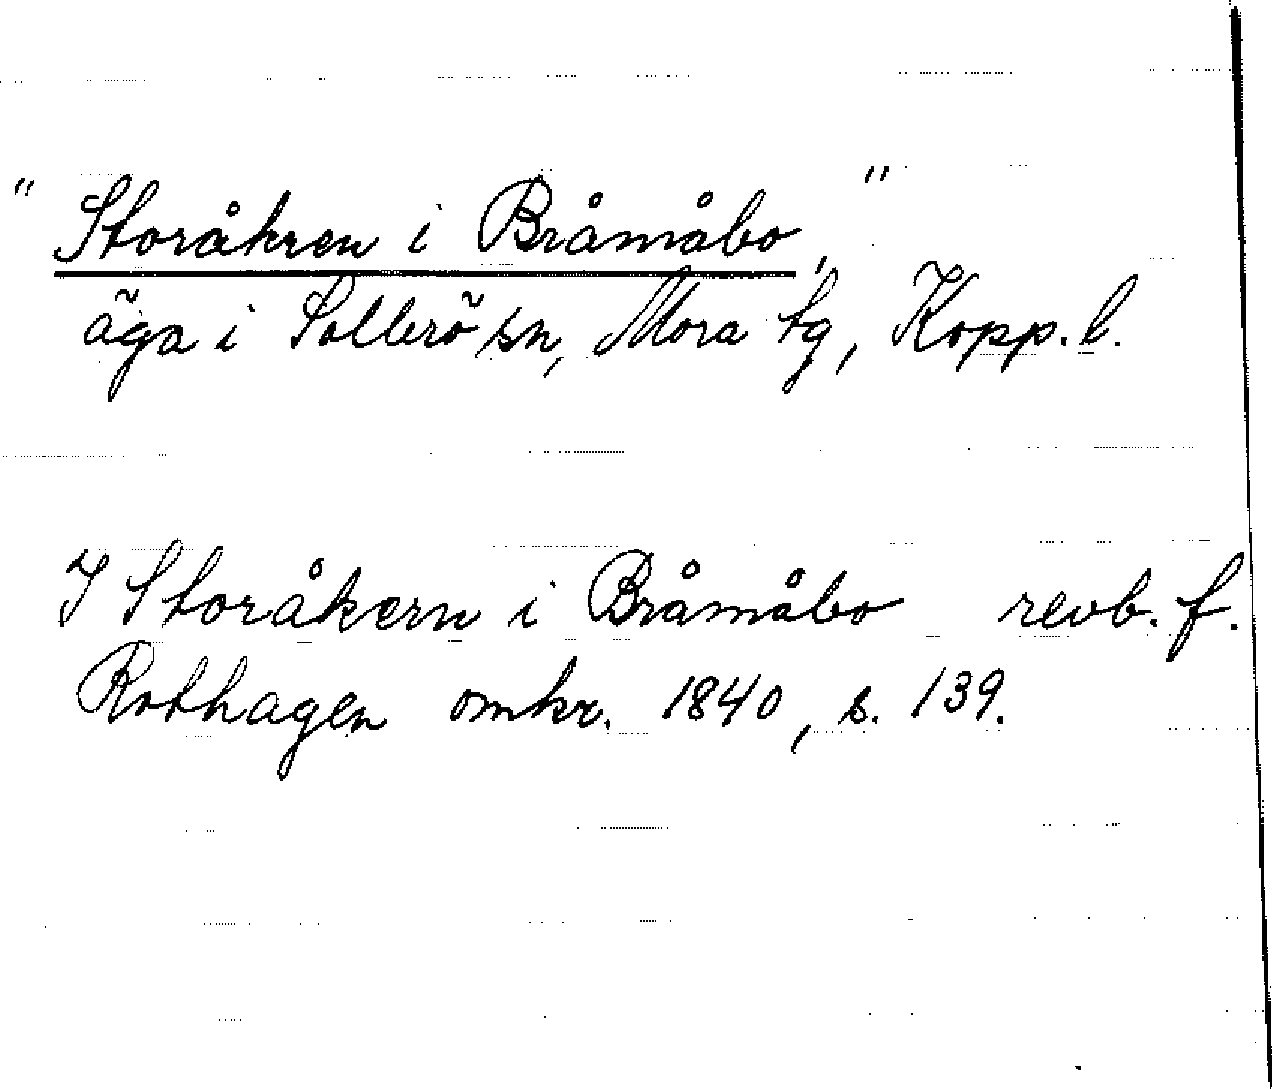 "Storåkren i Bråmåbo,"
äga i Sollerö sn, Mora tg, Kopp. l.
I Storåkern i Bråmåbo revb. f.
Rothagen omkr. 1840, s. 139.